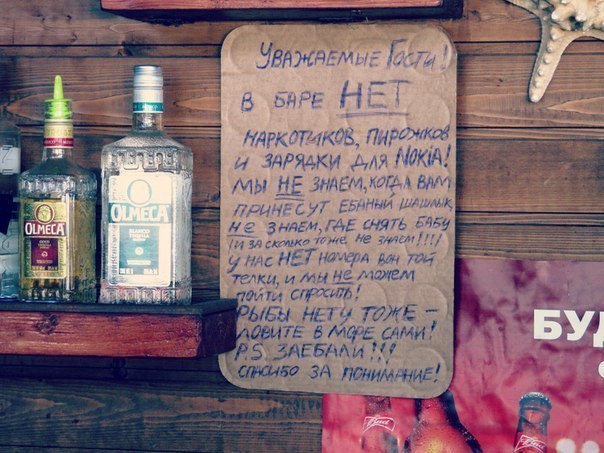 Уважаемые Гости!
В БАРЕ НЕТ
НАРКОТИКОВ, ПИРОЖКОВ
И ЗАРЯДКИ ДЛЯ NOKIA!
МЫ НЕ ЗНАЕМ, КОГДА ВАМ
ПРИНЕСУТ ЕБАНЫЙ ШАШЛЫК,
НЕ ЗНАЕМ, ГДЕ СНЯТЬ БАБУ
(И ЗА СКОЛЬКО ТОЖЕ НЕ ЗНАЕМ!!!!
У НАС НЕТ НОМЕРА ВОН ТОЙ
ТЕЛКИ, И МЫ НЕ МОЖЕМ
ПОЙТИ СПРОСИТЬ!
РЫБЫ НЕТУ ТОЖЕ –
ЛОВИТЕ В МОРЕ САМИ!
P.S. ЗАЕБАЛИ!!!
СПАСИБО ЗА ПОНИМАНИЕ!
OLMECA
OLMECA
BLANCO
БУД
Bud
Bud